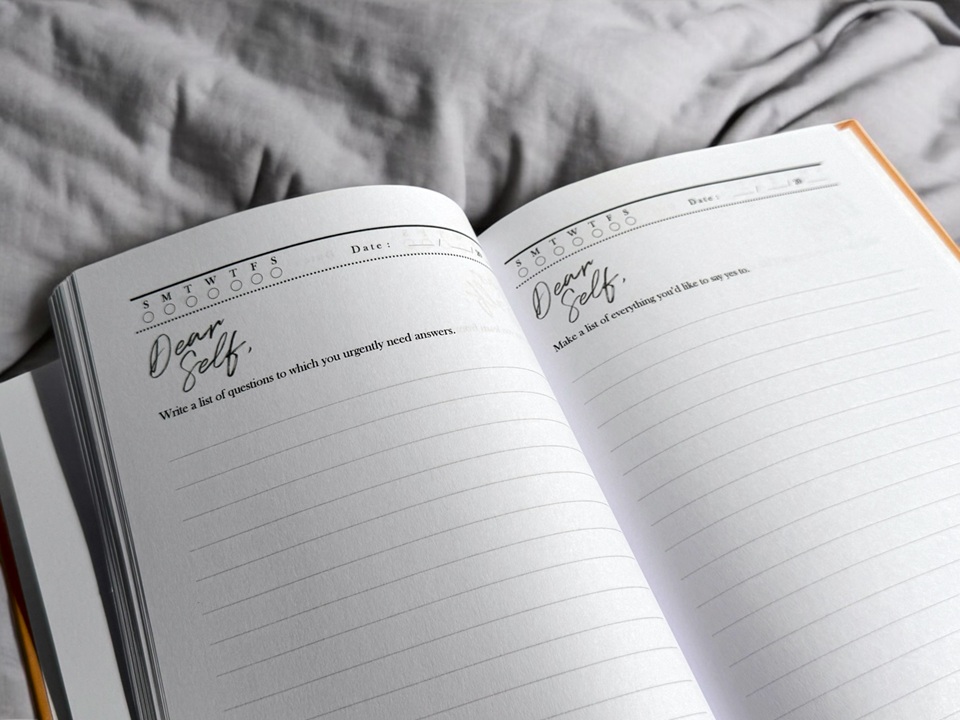 S M T W T F S
Date: / /
Dear
Self,
Write a list of questions to which you urgently need answers.
S M T W T F S
Date: / / 20
Dear
Self,
Make a list of everything you'd like to say yes to.